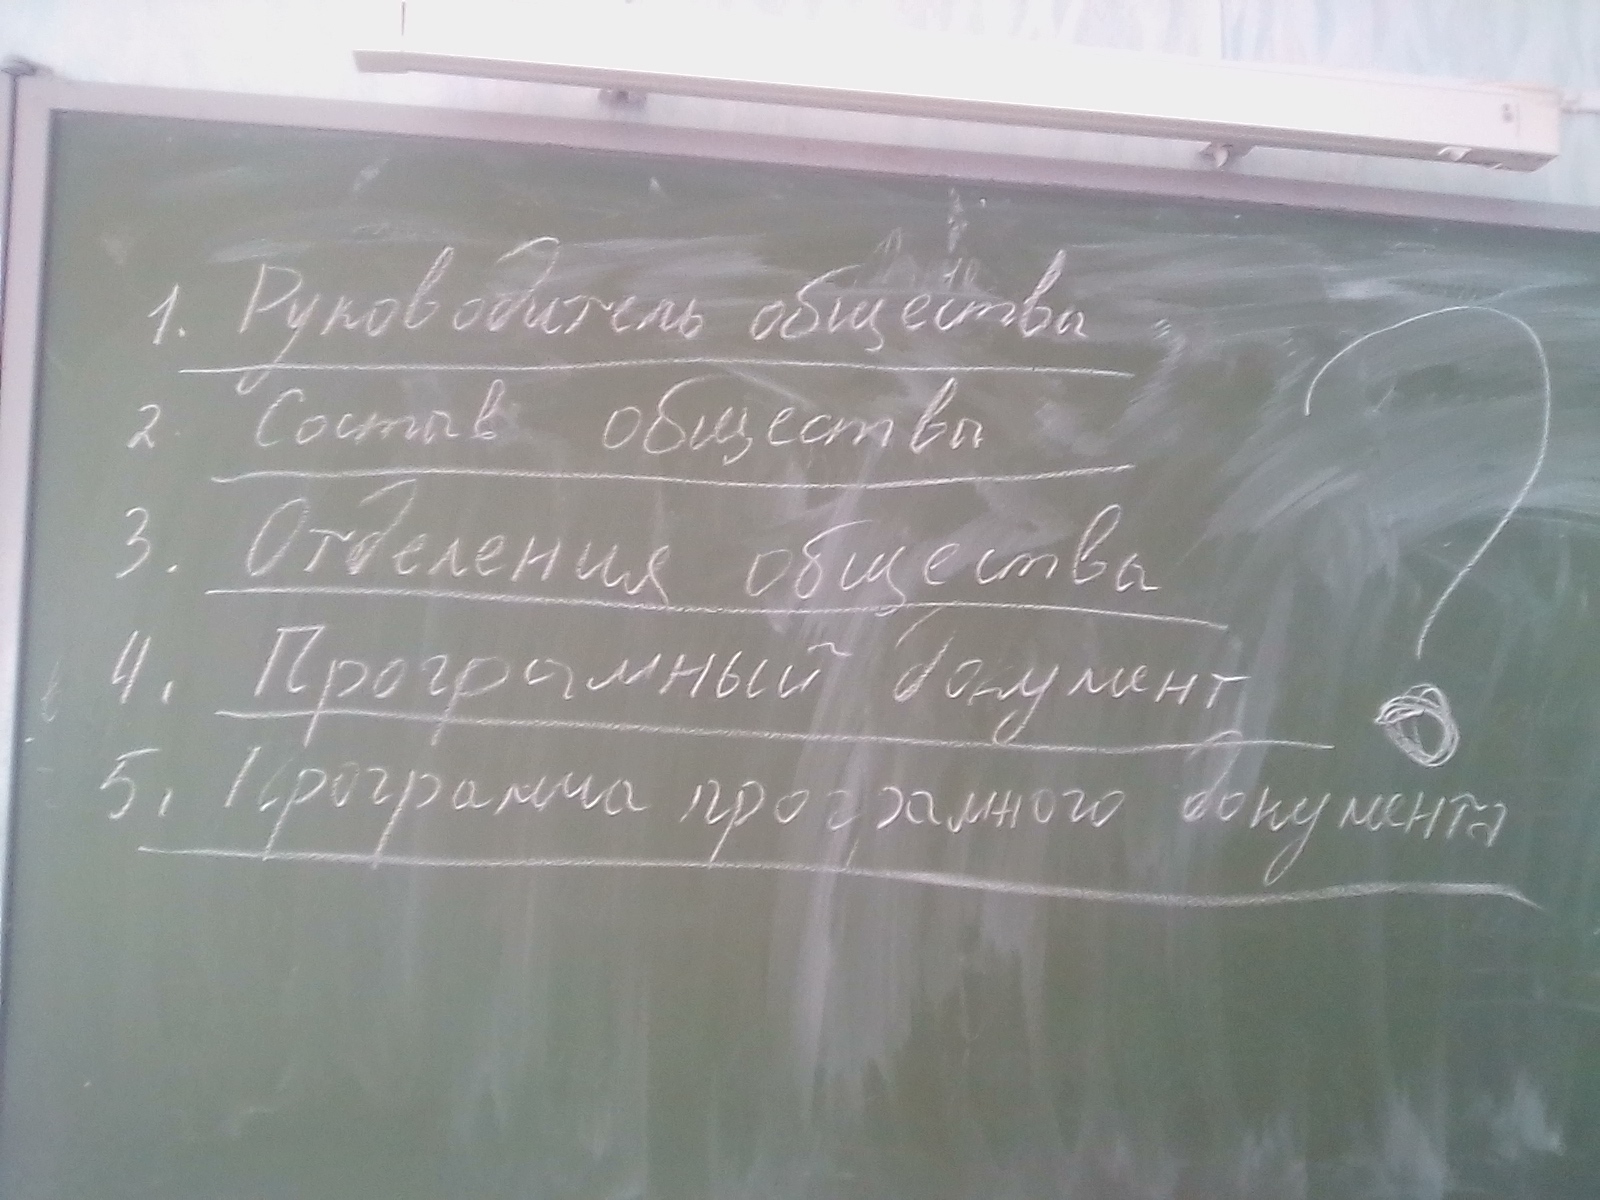 1. Руководитель общества
2. Состав общества
3. Отделения общества
4. Програмный документ
5. Программа програмного документа
?